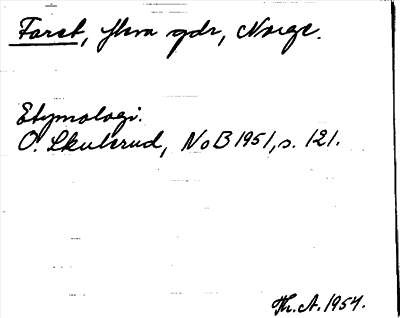 Faret, flera gdr, Norge.
Etymologi.
O. Skulerud, NoB 1951, s. 121.
Th. A. 1954.